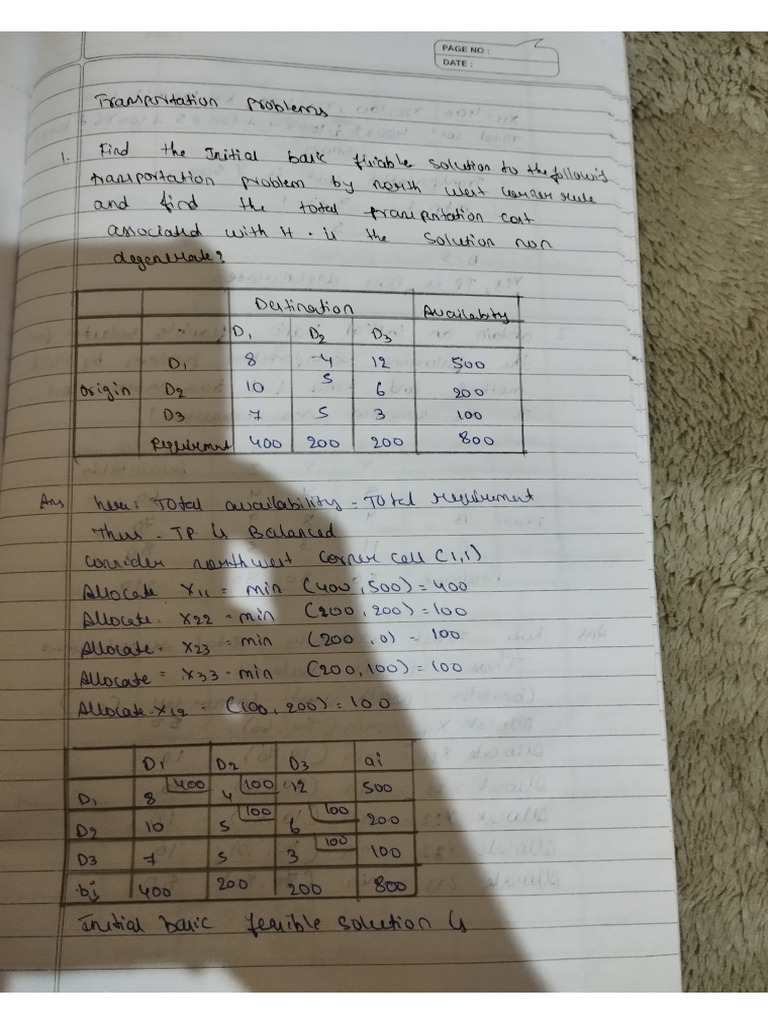 PAGE NO :
DATE :
Transportation problems
1. Find the Initial basic fisiable solution to the following
transportation problem by north west corner rule
and find the total transportation cost
associated with it. is the solution non
degenerate?
Destination Availability
D1 D2 D3
D1 8 4 12 500
Origin D2 10 5 6 200
D3 7 5 3 100
Requirement 400 200 200 800
Ans here: Total availability = Total requirement
Thus - TP is Balanced
Consider north west corner cell (1,1)
Allocate X11 = min (400, 500) = 400
Allocate. X22 = min (200, 200) = 100
Allocate = X23 = min (200, 0) = 100
Allocate = X33 - min (200, 100) = 100
Allocate X12 = (100, 200) = 100
D1 D2 D3 ai
D1 8 400 4 100 12 500
D2 10 5 100 6 100 200
D3 7 5 3 100 100
bj 400 200 200 800
Initial basic feasible solution is